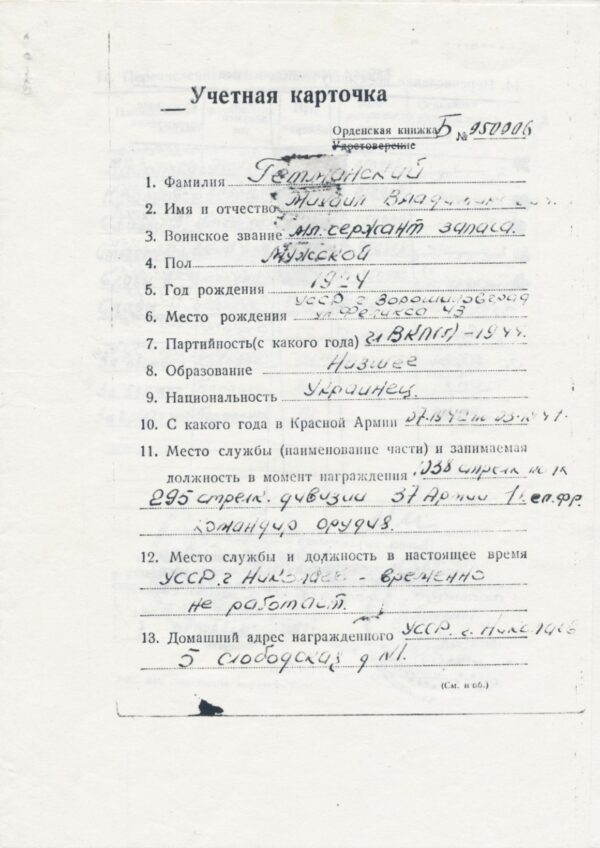 Учетная карточка
Орденская книжка Б № 950906
Удостоверение
1. Фамилия Гетманский
2. Имя и отчество Михаил Владимирович.
3. Воинское звание мл. сержант запаса.
4. Пол Мужской
5. Год рождения 1924
УССР г Ворошиловград
6. Место рождения ул Феликса 43
7. Партийность(с какого года) ВКП(б) - 1944.
8. Образование Низшее
9. Национальность Украинец.
10. С какого года в Красной Армии
11. Место службы (наименование части) и занимаемая
должность в момент награждения 1038
295 стрелк. дивизии 37 Армии
командир орудия.
12. Место службы и должность в настоящее время
УССР. г Николаев - временно
не работает.
13. Домашний адрес награжденного УССР. г. Николаев
5 слободская д №1.
(См. н об.)